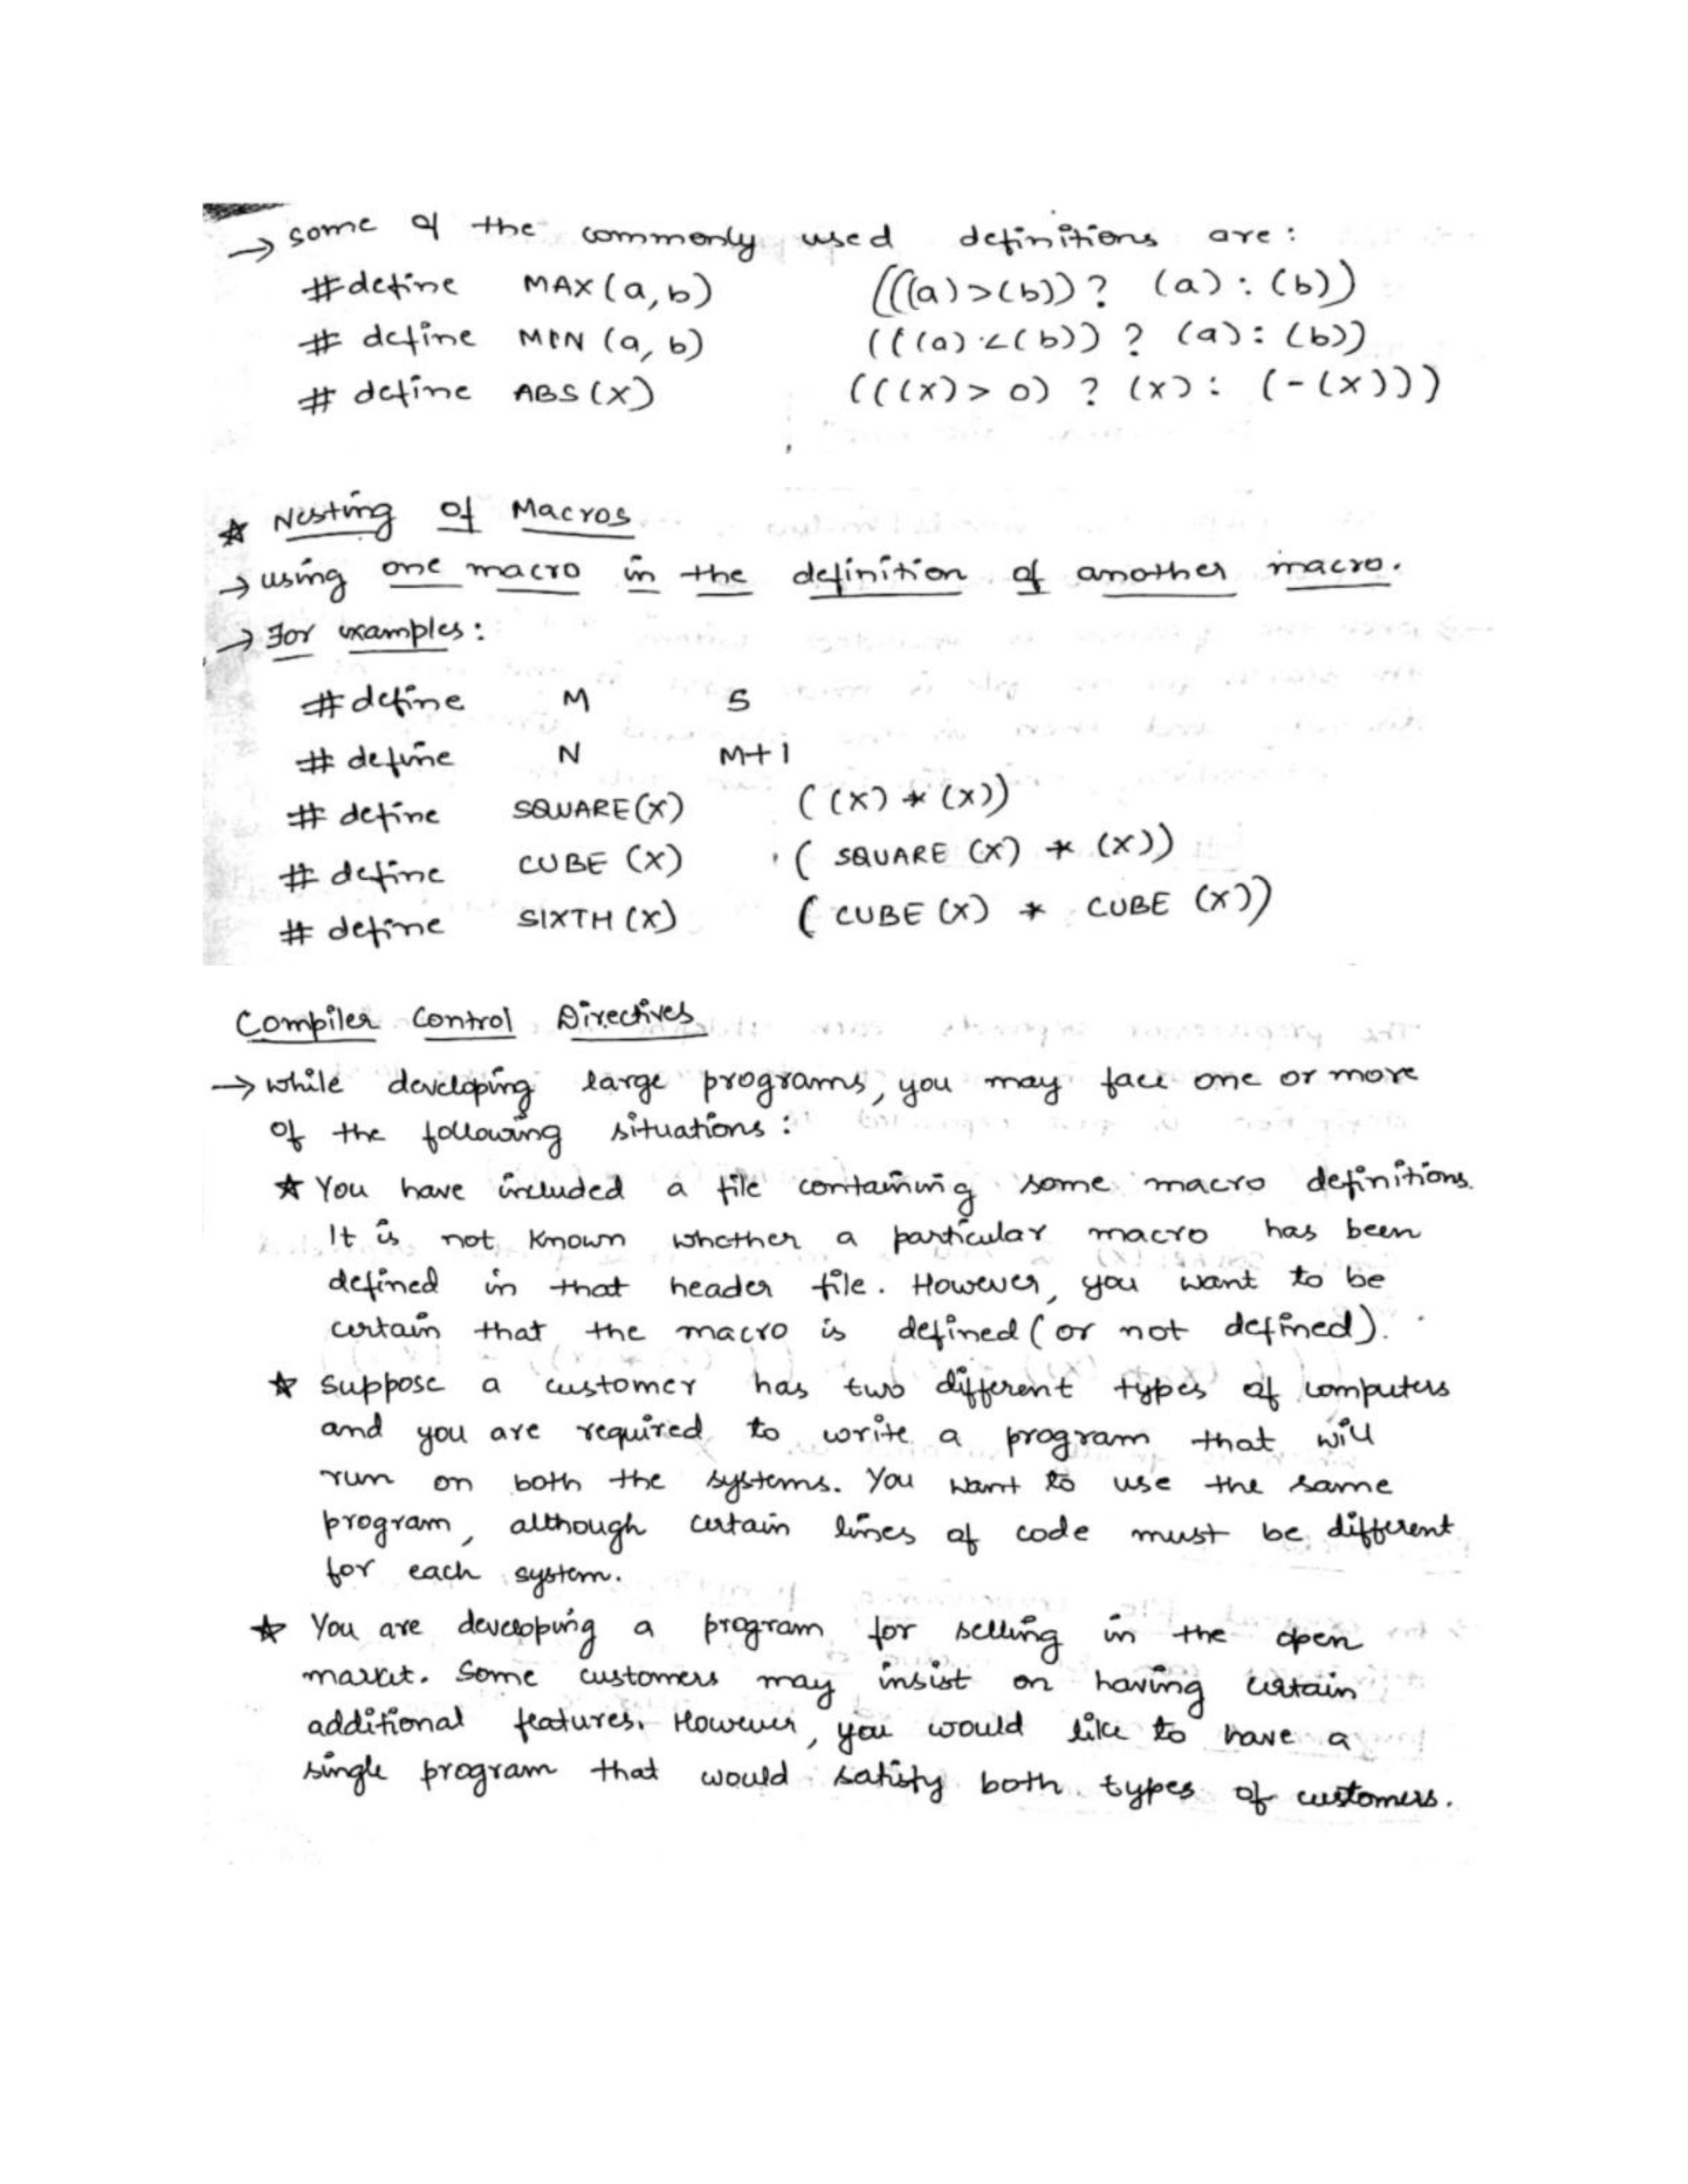 → some of the commonly used definitions are:
#define MAX(a,b) (((a)>(b))? (a):(b))
# define MIN (a,b) (((a)<(b)) ? (a): (b))
# define ABS(x) (((x)> 0) ? (x): (-(x)))
★ Nesting of Macros
→ using one macro in the definition of another macro.
→ For examples:
#define M 5
# define N M+1
# define SQUARE(x) ((x) * (x))
# define CUBE (x) ( SQUARE (x) * (x))
# define SIXTH (x) ( CUBE (x) * CUBE (x))
Compiler Control Directives
→ while developing large programs, you may face one or more
of the following situations:
★ You have included a file containing some macro definitions.
It is not known whether a particular macro has been
defined in that header file. However, you want to be
certain that the macro is defined (or not defined).
★ Suppose a customer has two different types of computers
and you are required to write a program that will
run on both the systems. You want to use the same
program, although certain lines of code must be different
for each system.
★ You are developing a program for selling in the open
market. Some customers may insist on having certain
additional features. However, you would like to have a
single program that would satisfy both types of customers.